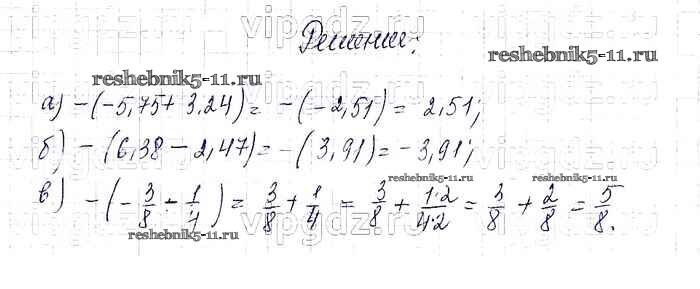 vipgdz.ru vipgdz.ru
Решение:
reshebnik5-11.ru
reshebnik5-11.ru
а) -(-5,75+3,24)= -(-2,51)= 2,51;
б) -(6,38-2,47)= -(3,91)= -3,91;
reshebnik5-11.ru reshebnik5-11.ru
в) -(-3/8-1/4) = 3/8+1/4 = 3/8+1·2/4·2=3/8+2/8=5/8.
reshebnik5-11.ru reshebnik5-11.ru